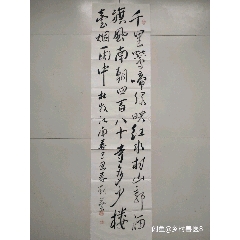 千里莺啼绿映红水村山郭酒
旗风南朝四百八十寺多少楼
台烟雨中 杜牧江南春
闲鱼@乡村画医8